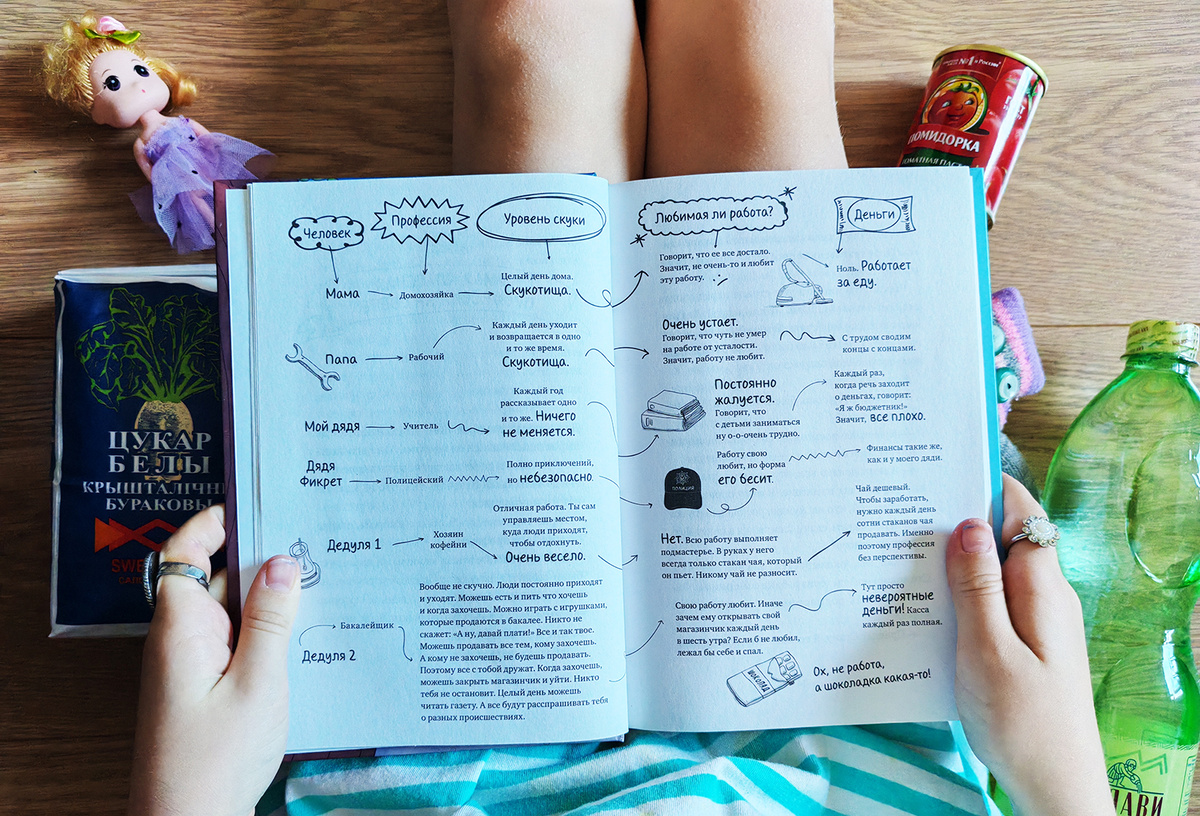 №1 в России
ПОМИДОРКА
ТОМАТНАЯ ПАСТА
Человек
Профессия
Уровень скуки
Любимая ли работа?
Деньги
Мама
Домохозяйка
Целый день дома.
Скукотища.
Говорит, что ее все достало.
Значит, не очень-то и любит
эту работу.
Ноль. Работает
за еду.
Папа
Рабочий
Каждый день уходит
и возвращается в одно
и то же время.
Скукотища.
Очень устает.
Говорит, что чуть не умер
на работе от усталости.
Значит, работу не любит.
С трудом сводим
концы с концами.
Мой дядя
Учитель
Каждый год
рассказывает одно
и то же. Ничего
не меняется.
Постоянно
жалуется.
Говорит, что
с детьми заниматься
ну о-о-очень трудно.
Каждый раз,
когда речь заходит
о деньгах, говорит:
«Я ж бюджетник!»
Значит, все плохо.
Дядя
Фикрет
Полицейский
Полно приключений,
но небезопасно.
ПОЛИЦИЯ
Работу свою
любит, но форма
его бесит.
Финансы такие же,
как и у моего дяди.
Дедуля 1
Хозяин
кофейни
Отличная работа. Ты сам
управляешь местом,
куда люди приходят,
чтобы отдохнуть.
Очень весело.
Нет. Всю работу выполняет
подмастерье. В руках у него
всегда только стакан чая, который
он пьет. Никому чай не разносит.
Чай дешевый.
Чтобы заработать,
нужно каждый день
сотни стаканов чая
продавать. Именно
поэтому профессия
без перспективы.
Дедуля 2
Бакалейщик
Вообще не скучно. Люди постоянно приходят
и уходят. Можешь есть и пить что хочешь
и когда захочешь. Можно играть с игрушками,
которые продаются в бакалее. Никто не
скажет: «А ну, давай плати!» Все и так твое.
Можешь продавать все тем, кому захочешь.
А кому не захочешь, не будешь продавать.
Поэтому все с тобой дружат. Когда захочешь,
можешь закрыть магазинчик и уйти. Никто
тебя не остановит. Целый день можешь
читать газету. А все будут расспрашивать тебя
о разных происшествиях.
Свою работу любит. Иначе
зачем ему открывать свой
магазинчик каждый день
в шесть утра? Если б не любил,
лежал бы себе и спал.
Тут просто
невероятные
деньги! Касса
каждый раз полная.
ШОКОЛАД
Ох, не работа,
а шоколадка какая-то!
ЦУКАР
БЕЛЫ
КРЫШТАЛІЧН
БУРАКОВЫ
SWE
ЛАВИ